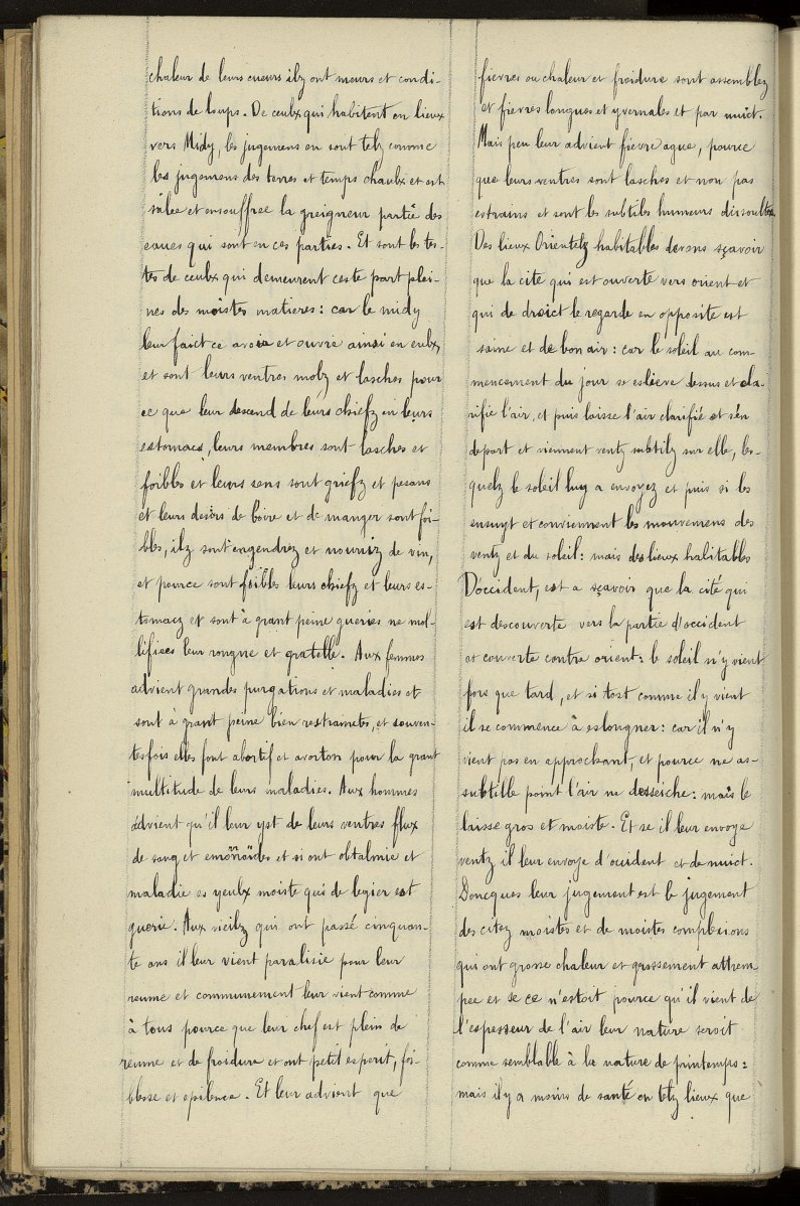 chaleur de leurs cueurs ilz ont meurs et condi-
tions de loups. De ceulx qui habitent en lieux
vers Midy, les jugemens en sont telz comme
les jugemens des terres et temps chaulx et est
salee et ensouffree la greigneur partie des
eaues qui sont en ces parties. Et sont les tes-
tes de ceulx qui demeurent ceste part plei-
nes des moistes matieres: car le midy
leur faict ce avoir et ouvre ainsi en eulx,
et sont leurs ventres molz et lasches pour
ce que leur descend de leurs chiefz en leurs
estomacs, leurs membres sont lasches et
foibles et leurs sens sont griefz et pesans
et leurs desirs de boire et de manger sont foi-
bles, ilz sont engendrez et nourriz de vin,
et pource sont foibles leurs chiefz et leurs es-
tomacz et sont à grant peine gueries ne mol-
lifiees leur rongne et gratelle. Aux femmes
advient grandes purgations et maladies et
sont à grant peine bien restrainctes, et souven-
tesfois elles font abortif et avorton pour la grant
multitude de leurs maladies. Aux hommes
advient qu'il leur yst de leurs ventres flux
de sang et emoroïdes et si ont obtalmie et
maladie es yeulx moiste qui de legier est
guerie. Aux vieilz qui ont passé cinquan-
te ans il leur vient paralisie pour leur
reume et communement leur vient comme
à tous pource que leur chef est plein de
reume et de froidure et ont petit esperit, foi-
blesse et epilence. Et leur advient que
fievres ou chaleur et froidure sont assemblez
et fievres longues et yvernales et par nuict.
Mais peu leur advient fievre ague, pource
que leurs ventres sont lasches et non pas
estrains et sont les subtiles humeurs dissoultes.
Des lieux Orientelz habitables devons sçavoir
que la cité qui est ouverte vers orient et
qui de droict le regarde en opposite est
saine et de bon air: car le soleil au com-
mencement du jour se eslieve dessus et cla-
rifie l'air, et puis laisse l'air clarifié et s'en
depart et viennent ventz subtilz sur elle, les-
quelz le soleil luy a envoyez et puis si les
ensuyt et conviennent les mouvemens des
ventz et du soleil: mais des lieux habitables
D'occident, est a sçavoir que la cité qui
est descouverte vers la partie d'occident
et couverte contre orient: le soleil n'y vient
fors que tard, et si tost comme il y vient
il se commence à eslongner: car il n'y
vient pas en approchant, et pource ne as-
subtille point l'air ne desseiche: mais le
laisse gros et moiste. Et se il leur envoye
ventz il leur envoye d'occident et de nuict.
Doncques leur jugement est le jugement
des citez moistes et de moistes complexions
qui ont grosse chaleur et grossement attrem-
pee et se ce n'estoit pource qu'il vient de
l'espesseur de l'air leur nature seroit
comme semblable à la nature de printemps:
mais il y a moins de santé en telz lieux que